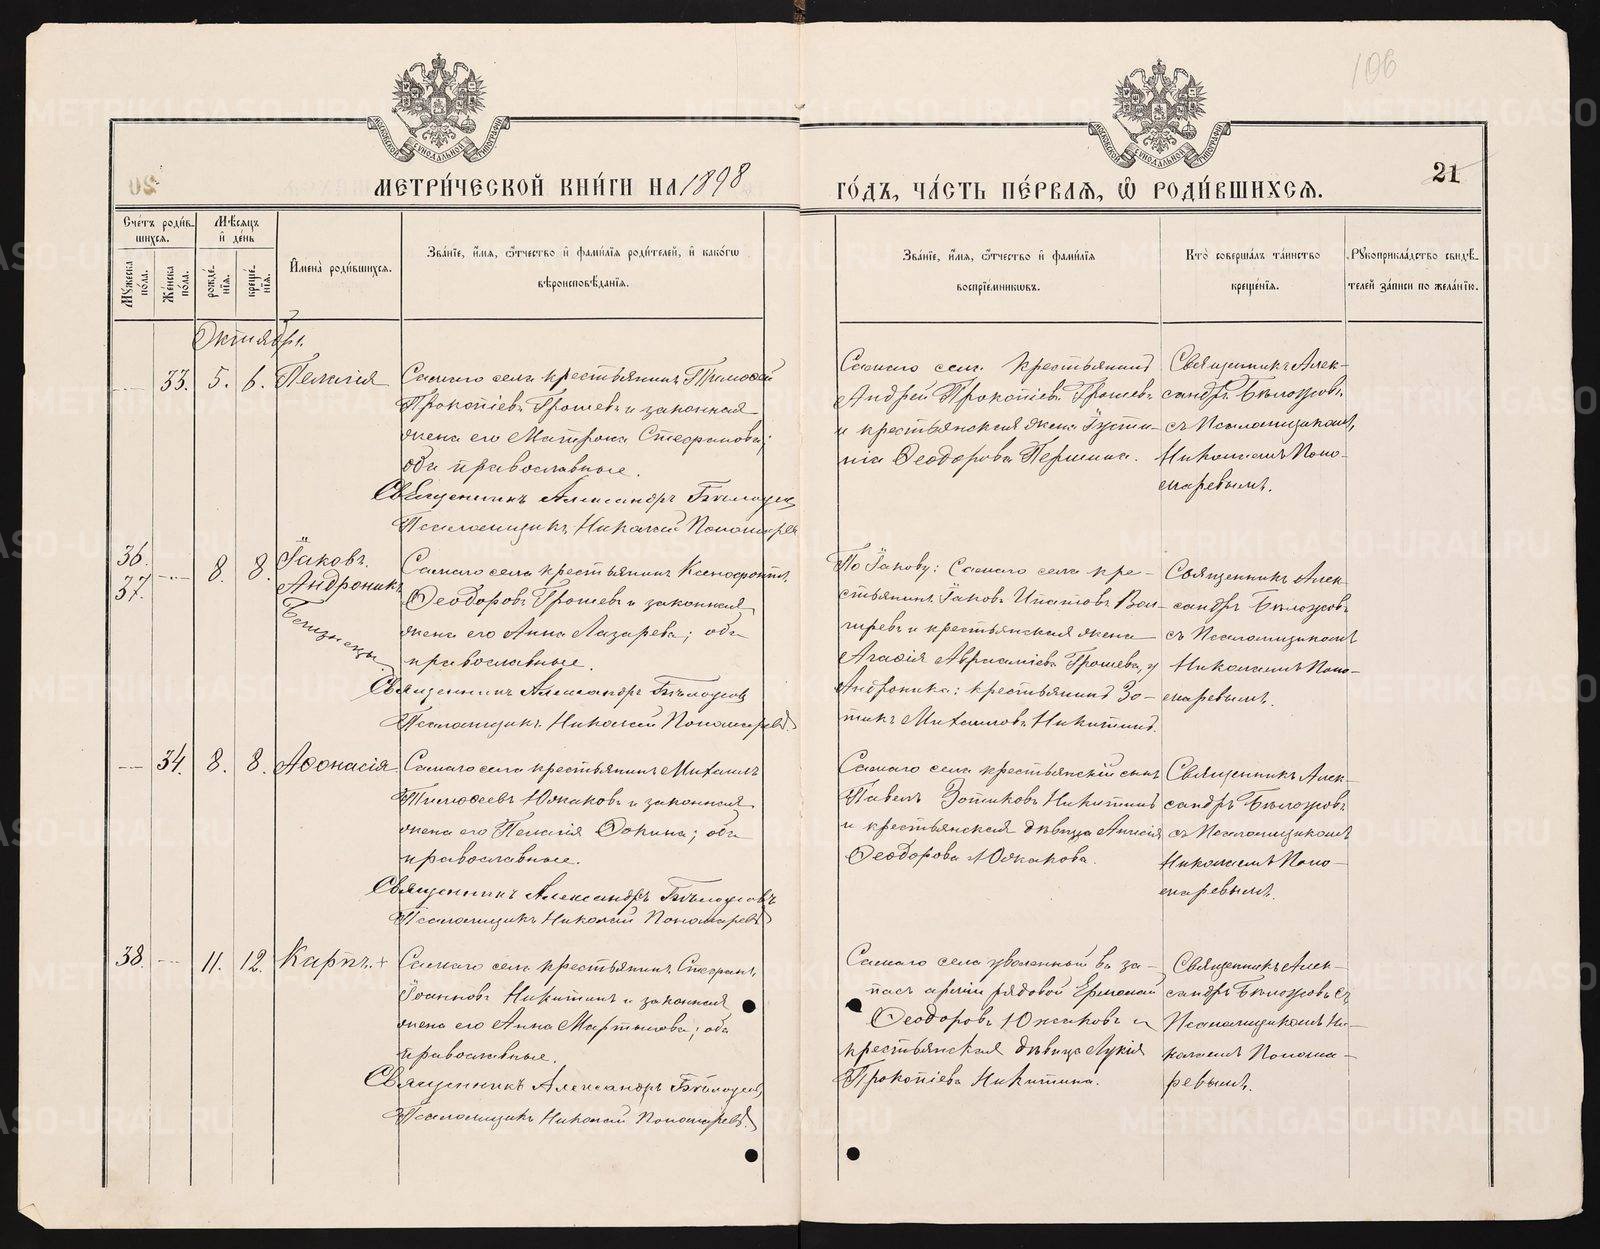 106
МЕТРИ́ЧЕСКОЙ КНИ́ГИ НА 1898
ГО́ДЪ, ЧА́СТЬ ПЕ́РВАЯ, Ѿ РОДИ́ВШИХСѦ.
21
Сче́тъ роди́в-
шихсѧ.
Мѣ́сѧцъ
и̂ де́нь
Мꙋ́жеска по́ла.
Же́нска по́ла.
рожде́нїѧ.
креще́нїѧ.
И҆мена̀ роди́вшихсѧ.
Зва́нїе, и҆́мѧ, ѻ҆́тчество и҆ фами́лїѧ роди́телей, и҆ како́гѡ
вѣроисповѣ́данїѧ.
Зва́нїе, и҆́мѧ, ѻ҆́тчество и҆ фами́лїѧ
воспрїе́мникѡвъ.
Кто̀ соверша́лъ та́инство
креще́нїѧ.
Рꙋкоприкла́дство свидѣ́-
телей за́писи по жела́нїю.
Октябрь.
33. 5. 6. Пелагія
Самаго села крестьянинъ Тимоѳей
Прокопіевъ Грошевъ и законная
жена его Матрона Стефанова;
оба православные.
Священникъ Александръ Бѣлоусов
Псаломщикъ Николай Пономарев
Самаго села крестьянинъ
Андрей Прокопіевъ Грошевъ
и крестьянская жена Іусти-
нія Ѳеодорова Першина.
Священникъ Алек-
сандръ Бѣлоусовъ
съ Псаломщикомъ
Николаемъ Поно-
маревымъ.
36.
37. 8. 8. Іаковъ.
Андроникъ
Близнецы.
Самаго села крестьянинъ Ксенофонтъ
Ѳеодоровъ Грошевъ и законная
жена его Анна Лазарева; оба
православные.
Священникъ Александръ Бѣлоусов
Псаломщикъ Николай Пономаревъ
По Іакову: Самаго села кре-
стьянинъ Іаковъ Ипатовъ
и крестьянская жена
Агафія Авраміева Грошева, у
Андроника: крестьянинъ Зо-
тикъ Михаиловъ Никитинъ.
Священникъ Алек-
сандръ Бѣлоусовъ
съ Псаломщикомъ
Николаемъ Поно-
маревымъ.
34. 8. 8. Аѳонасія
Самаго села крестьянинъ Михаилъ
Тимоѳеевъ Южаковъ и законная
жена его Пелагія Ѳокина; оба
православные.
Священникъ Александръ Бѣлоусовъ
Псаломщикъ Николай Пономаревъ
Самаго села крестьянскій сынъ
Павелъ Зотиковъ Никитинъ
и крестьянская дѣвица Анисія
Ѳеодорова Южакова.
Священникъ Алек-
сандръ Бѣлоусовъ
съ Псаломщикомъ
Николаемъ Поно-
маревымъ.
38. 11. 12. Карпъ. +
Самаго села крестьянинъ Стефанъ
Іоанновъ Никитинъ и законная
жена его Анна Мартынова; оба
православные.
Священникъ Александръ Бѣлоусов
Псаломщикъ Николай Пономаревъ.
Самаго села уволенный въ за-
пасъ арміи рядовой Ермолай
Ѳеодоровъ Южаковъ и
крестьянская дѣвица Лукія
Прокопіева Никитина.
Священникъ Алек-
сандръ Бѣлоусовъ съ
Псаломщикомъ Ни-
колаемъ Понома-
ревымъ.
METRIKI.GASO-URAL.RU